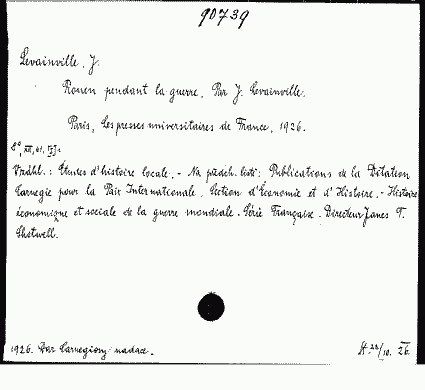 90739
Levainville, J.
Rouen pendant la guerre. Par J. Levainville.
Paris, Les presses universitaires de France, 1926.
8°,
V záhl.: Études d'histoire locale. - Na předch. listě: Publications de la Dotation
Carnegie pour la Paix Internationale. Section d'Économie et d'Histoire. - Histoire
économique et sociale de la guerre mondiale. Série Française. Directeur James T.
Shotwell.
1926. Dar Carnegieovy nadace.
22/10. 26.